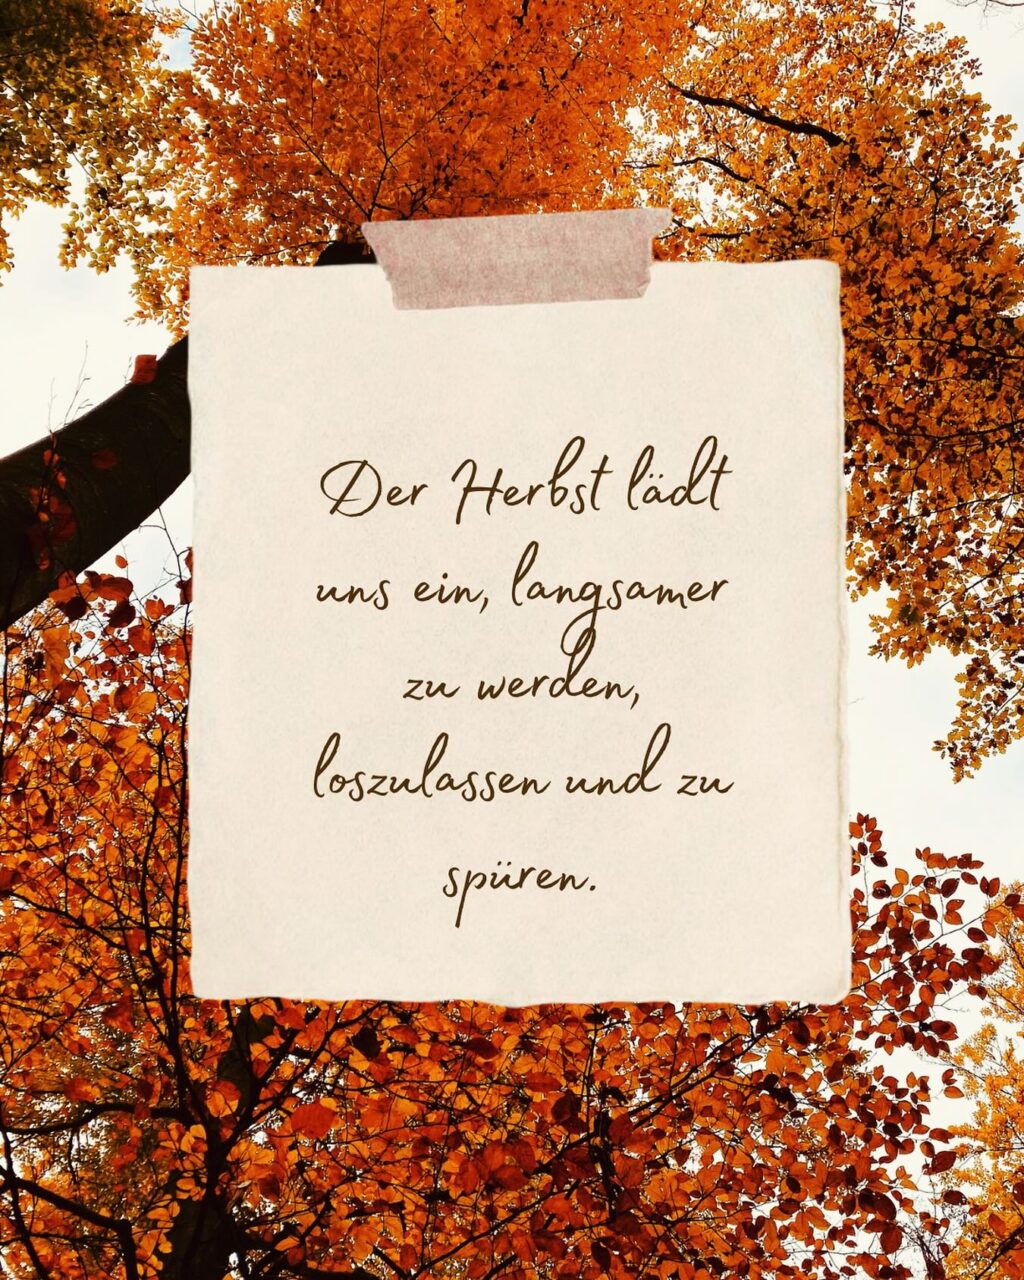 Der Herbst lädt
uns ein, langsamer
zu werden,
loszulassen und zu
spüren.